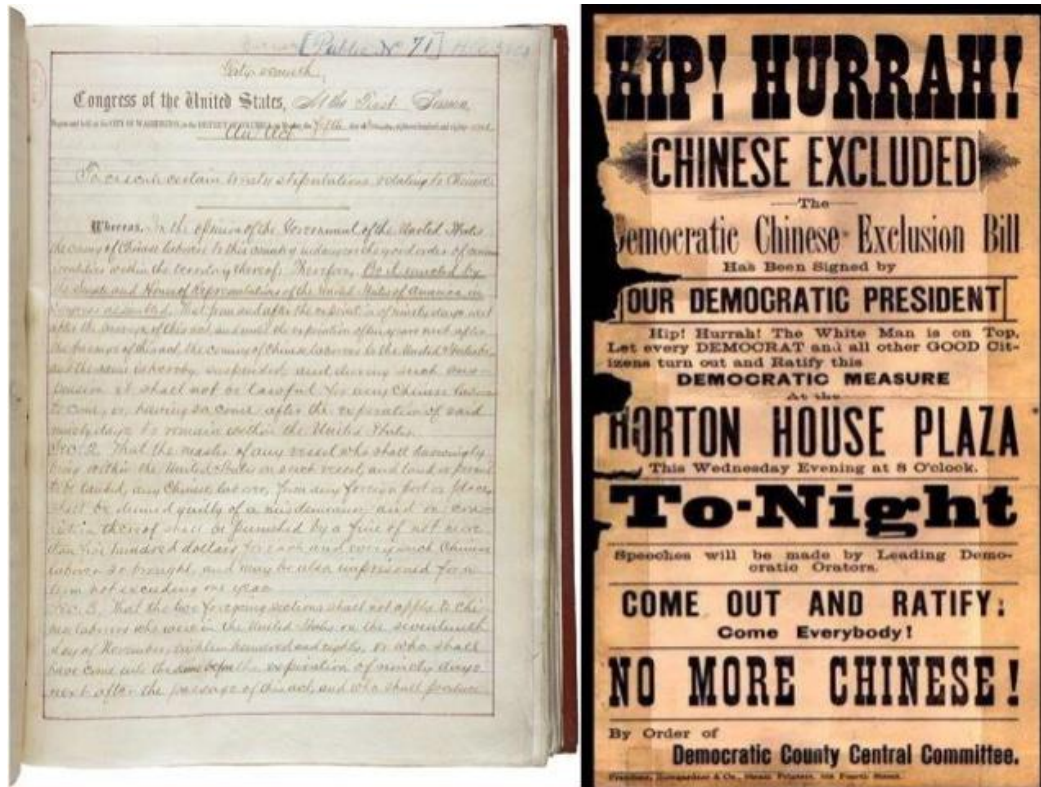 [Public No 71]
Forty-seventh
Congress of the United States, At the First Session
Begun and held at the CITY OF WASHINGTON, in the DISTRICT OF COLUMBIA, on Monday, the fifth day of December, eighteen hundred and eighty-one
An Act
To execute certain treaty stipulations relating to Chinese.
Whereas, In the opinion of the Government of the United States
the coming of Chinese laborers to this country endangers the good order of certain
localities within the territory thereof: Therefore, Be it enacted by
the Senate and House of Representatives of the United States of America in
Congress assembled, That from and after the expiration of ninety days next
after the passage of this act, and until the expiration of ten years next after
the passage of this act, the coming of Chinese laborers to the United States be,
and the same is hereby, suspended; and during such sus-
pension it shall not be lawful for any Chinese laborer
to come, or, having so come after the expiration of said
ninety days to remain within the United States.
Sec. 2. That the master of any vessel who shall knowingly
bring within the United States on such vessel, and land or permit
to be landed, any Chinese laborer, from any foreign port or place,
shall be deemed guilty of a misdemeanor, and on con-
viction thereof shall be punished by a fine of not more
than five hundred dollars for each and every such Chinese
laborer so brought, and may be also imprisoned for a
term not exceeding one year.
Sec. 3. That the two foregoing sections shall not apply to Chi-
nese laborers who were in the United States on the seventeenth
day of November, eighteen hundred and eighty, or who shall
have come into the same before the expiration of ninety days
next after the passage of this act, and who shall produce
HIP! HURRAH!
CHINESE EXCLUDED
The
Democratic Chinese Exclusion Bill
Has Been Signed by
OUR DEMOCRATIC PRESIDENT
Hip! Hurrah! The White Man is on Top,
Let every DEMOCRAT and all other GOOD Cit-
izens turn out and Ratify this
DEMOCRATIC MEASURE
At the
HORTON HOUSE PLAZA
This Wednesday Evening at 8 O'clock.
To-Night
Speeches will be made by Leading Demo-
cratic Orators.
COME OUT AND RATIFY:
Come Everybody!
NO MORE CHINESE!
By Order of
Democratic County Central Committee.
& Co., Steam Printers, Fourth Street.